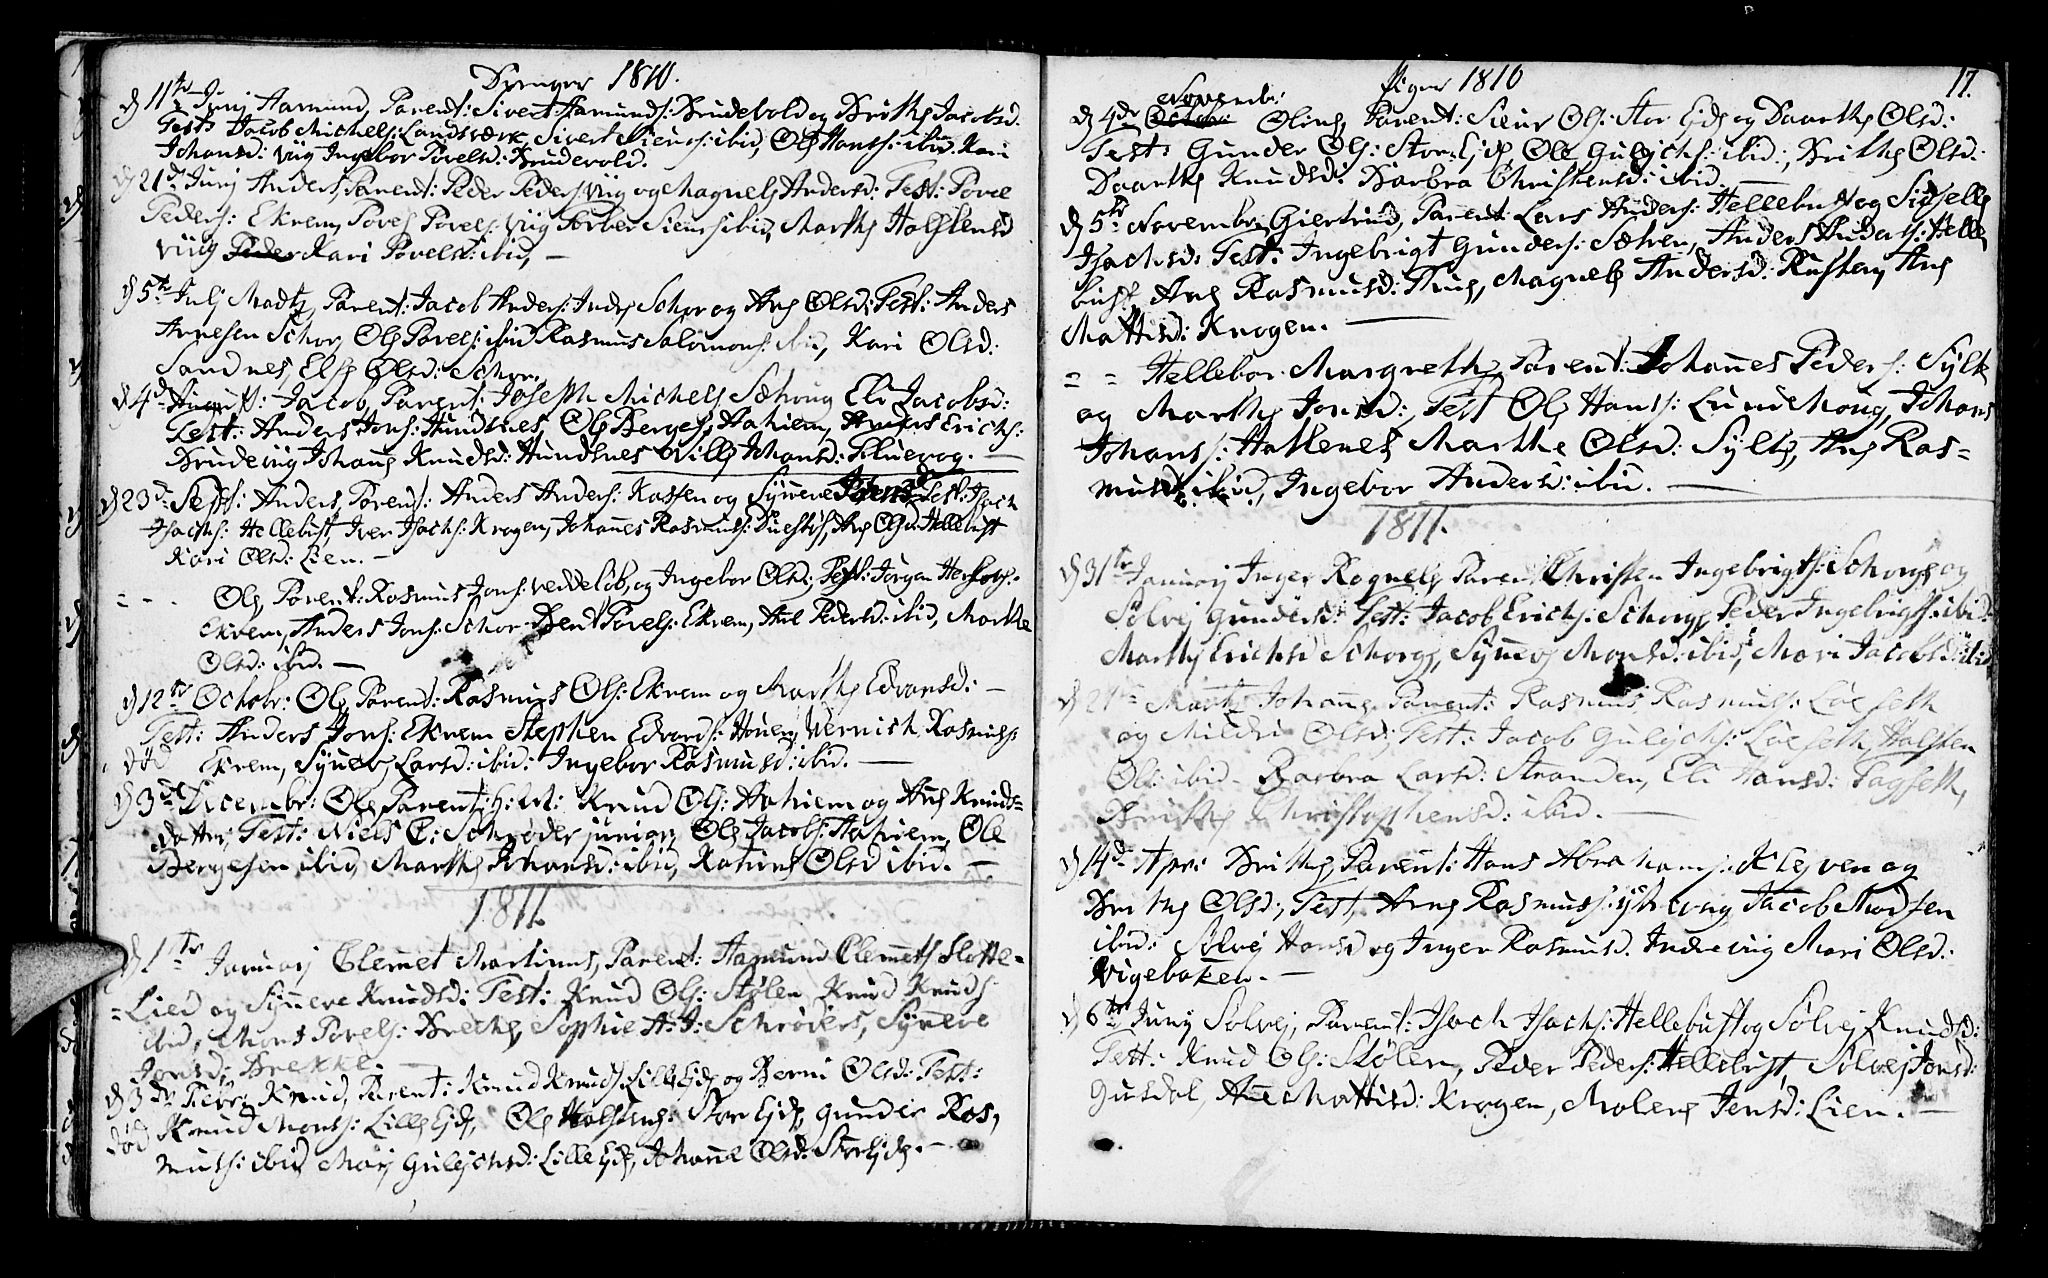 Drenger 1810.
d 11te Junj Aamund, Parent: Sivert Aamunds: Brudevold og Brithe Jacobsd:
Test: Jacob Michels: Landsværk, Sivert Siurs: ibid, Ole Hans: ibid. Kari
Johansd: Viig Ingebor Povelsd: Brudevold.
d 21de Junj Anders, Parent: Peder Peders: Viig og Magnele Andersd: Test: Povel
Peders: Ekrem, Povel Povels: Viig Torber Siurs: ibid, Marthe Holstensd
Viig Peder Kari Povelsd: ibid, —
d 5te Julj Madtz, Parent: Jacob Anders: Indre Schor og Ane Olsd: Test: Anders
Arnesen Schor, Ole Povels: ibid Rasmus Salomons: ibid, Kari Olsd:
Sandnes, Else Olsd: Schor.
d 4de August: Jacob, Parent: Joseph Michels Eli Jacobsd:
Test: Anders Jons: Hundsnes, Ole Berges: Aahiem, Anders Erichs:
Brudevig Johane Knudsd: Hundsnes Johansd: Fluevog. —
d 23de Sept: Anders, Parent: Anders Anders: Kassen og Synneve Test: Isach
Isachs: Hellebust, Iver Isachs: Krogen, Johannes Rasmuss: Ane Olsd: Hellebust
Kari Olsd: Lien. —
= - . Ole, Parent: Rasmus Jons: Veddelob, og Ingebor Olsd: Test: Jørgen
Ekrem, Anders Jons: Schor Bent Povels: Ekrem, Ane Pedersd: ibid, Marthe
Olsd: ibid. —
d 12te Octobr: Ole, Parent: Rasmus Ols: Ekrem og Marthe Edvarsd: —
Test: Anders Jons: Ekrem Stephen Edvards: Wernich Rasmuss:
död Ekrem, Synneve Larsd: ibid: Ingebor Rasmusd: ibid. —
d 3de Decembr: Ole Parent: Knud Ols: Aahiem og Ane Knuds=
datter, Test: Niels C: Schrøder junior, Ole Jacobs: Aahiem, Ole
Bergesen ibid, Marthe Johansd: ibid, Katrine Olsd ibid. —
1811.
d 1te Januarj Clemet Martinus, Parent: Aamund Clemets Slotte=
=Lied og Synneve Knudsd: Test: Knud Ols: Stølen Knud Knuds:
ibid, Mons Povels: Brecke, Sophie A: J: Schrøders, Synneve
Jonsd: Brekke. —
d 3de Febr: Knud, Parent: Knud Knuds: Lille Ejde og Berni Olsd: Test:
död Knud Mons: Lille Ejde, Ole Holstens: Stor Ejde, Gunder Ras,
mus: ibid, Marj Gulichsd: Lille Ejde, Johanne Olsd: Stor Ejde. —
Piger 1810
17.
Novembr:
d 4de Octobr: Oline, Parent: Siur Ols: Stor Ejde og Daarthe Olsd:
Test: Gunder Ols: Stor-Ejde, Ole Gulichs: ibid:, Brithe Olsd:
Daarthe Knudsd: Barbra Christensd: ibid. —
d 5te Novembr Giertrud, Parent: Lars Anders: Hellebust og Sidselle
Isachsd: Test: Ingebrigt Gunders: Sætren, Anders Anders: Helle
bust, Ane Rasmusd: Thue, Magnele Andersd: Rusten, Ane
Mattisd: Krogen. —
= = Hellebor Margrethe, Parent: Johannes Peders: Sylte
og Marthe Jonsd: Test Ole Hans: Johans
Johans: Hallenes Marthe Olsd: Sylte, Ane Ras=
musd: ibid, Ingebor Andersd: ibid. —
1811.
d 31te Januarj Inger Rognele, Parent: Christen Ingebrigts: Schorge og
Sølvej Gundersd: Test: Jacob Erichs: Schorge, Peder Ingebrigts: ibid:
Marthe Erichsd Schorge, Synneve Monsd: ibid, Mari Jacobsd: ibid
Martj Johane Parent: Rasmus Rasmus: Løeseth
og Mildri Olsd: Test: Jacob Gulichs: Løeseth, Holsten
Ols: ibid - Barbra Larsd: Stranden, Eli Hansd: Fagseth,
Brithe Christophensd: ibid. —
d 14de Apr: Brithe, Parent: Hans Abrahams: Kleven og
Brithe Olsd:, Test, Arne Rasmus: Jacob Madsen
ibid: Sølvej Hansd og Inger Rasmusd. Indreviig Mari Olsd:
Vigebaken. —
d 6te Junj Solvej, Parent: Isach Isachs: Hellebust og Sølvej Knudsd:
Test: Knud Ols: Stølen, Peder Peders: Hellebust, Sølvej Jonsd:
Gusdal, Ane Mattisd: Krogen, Malene Jensd: Lien. —